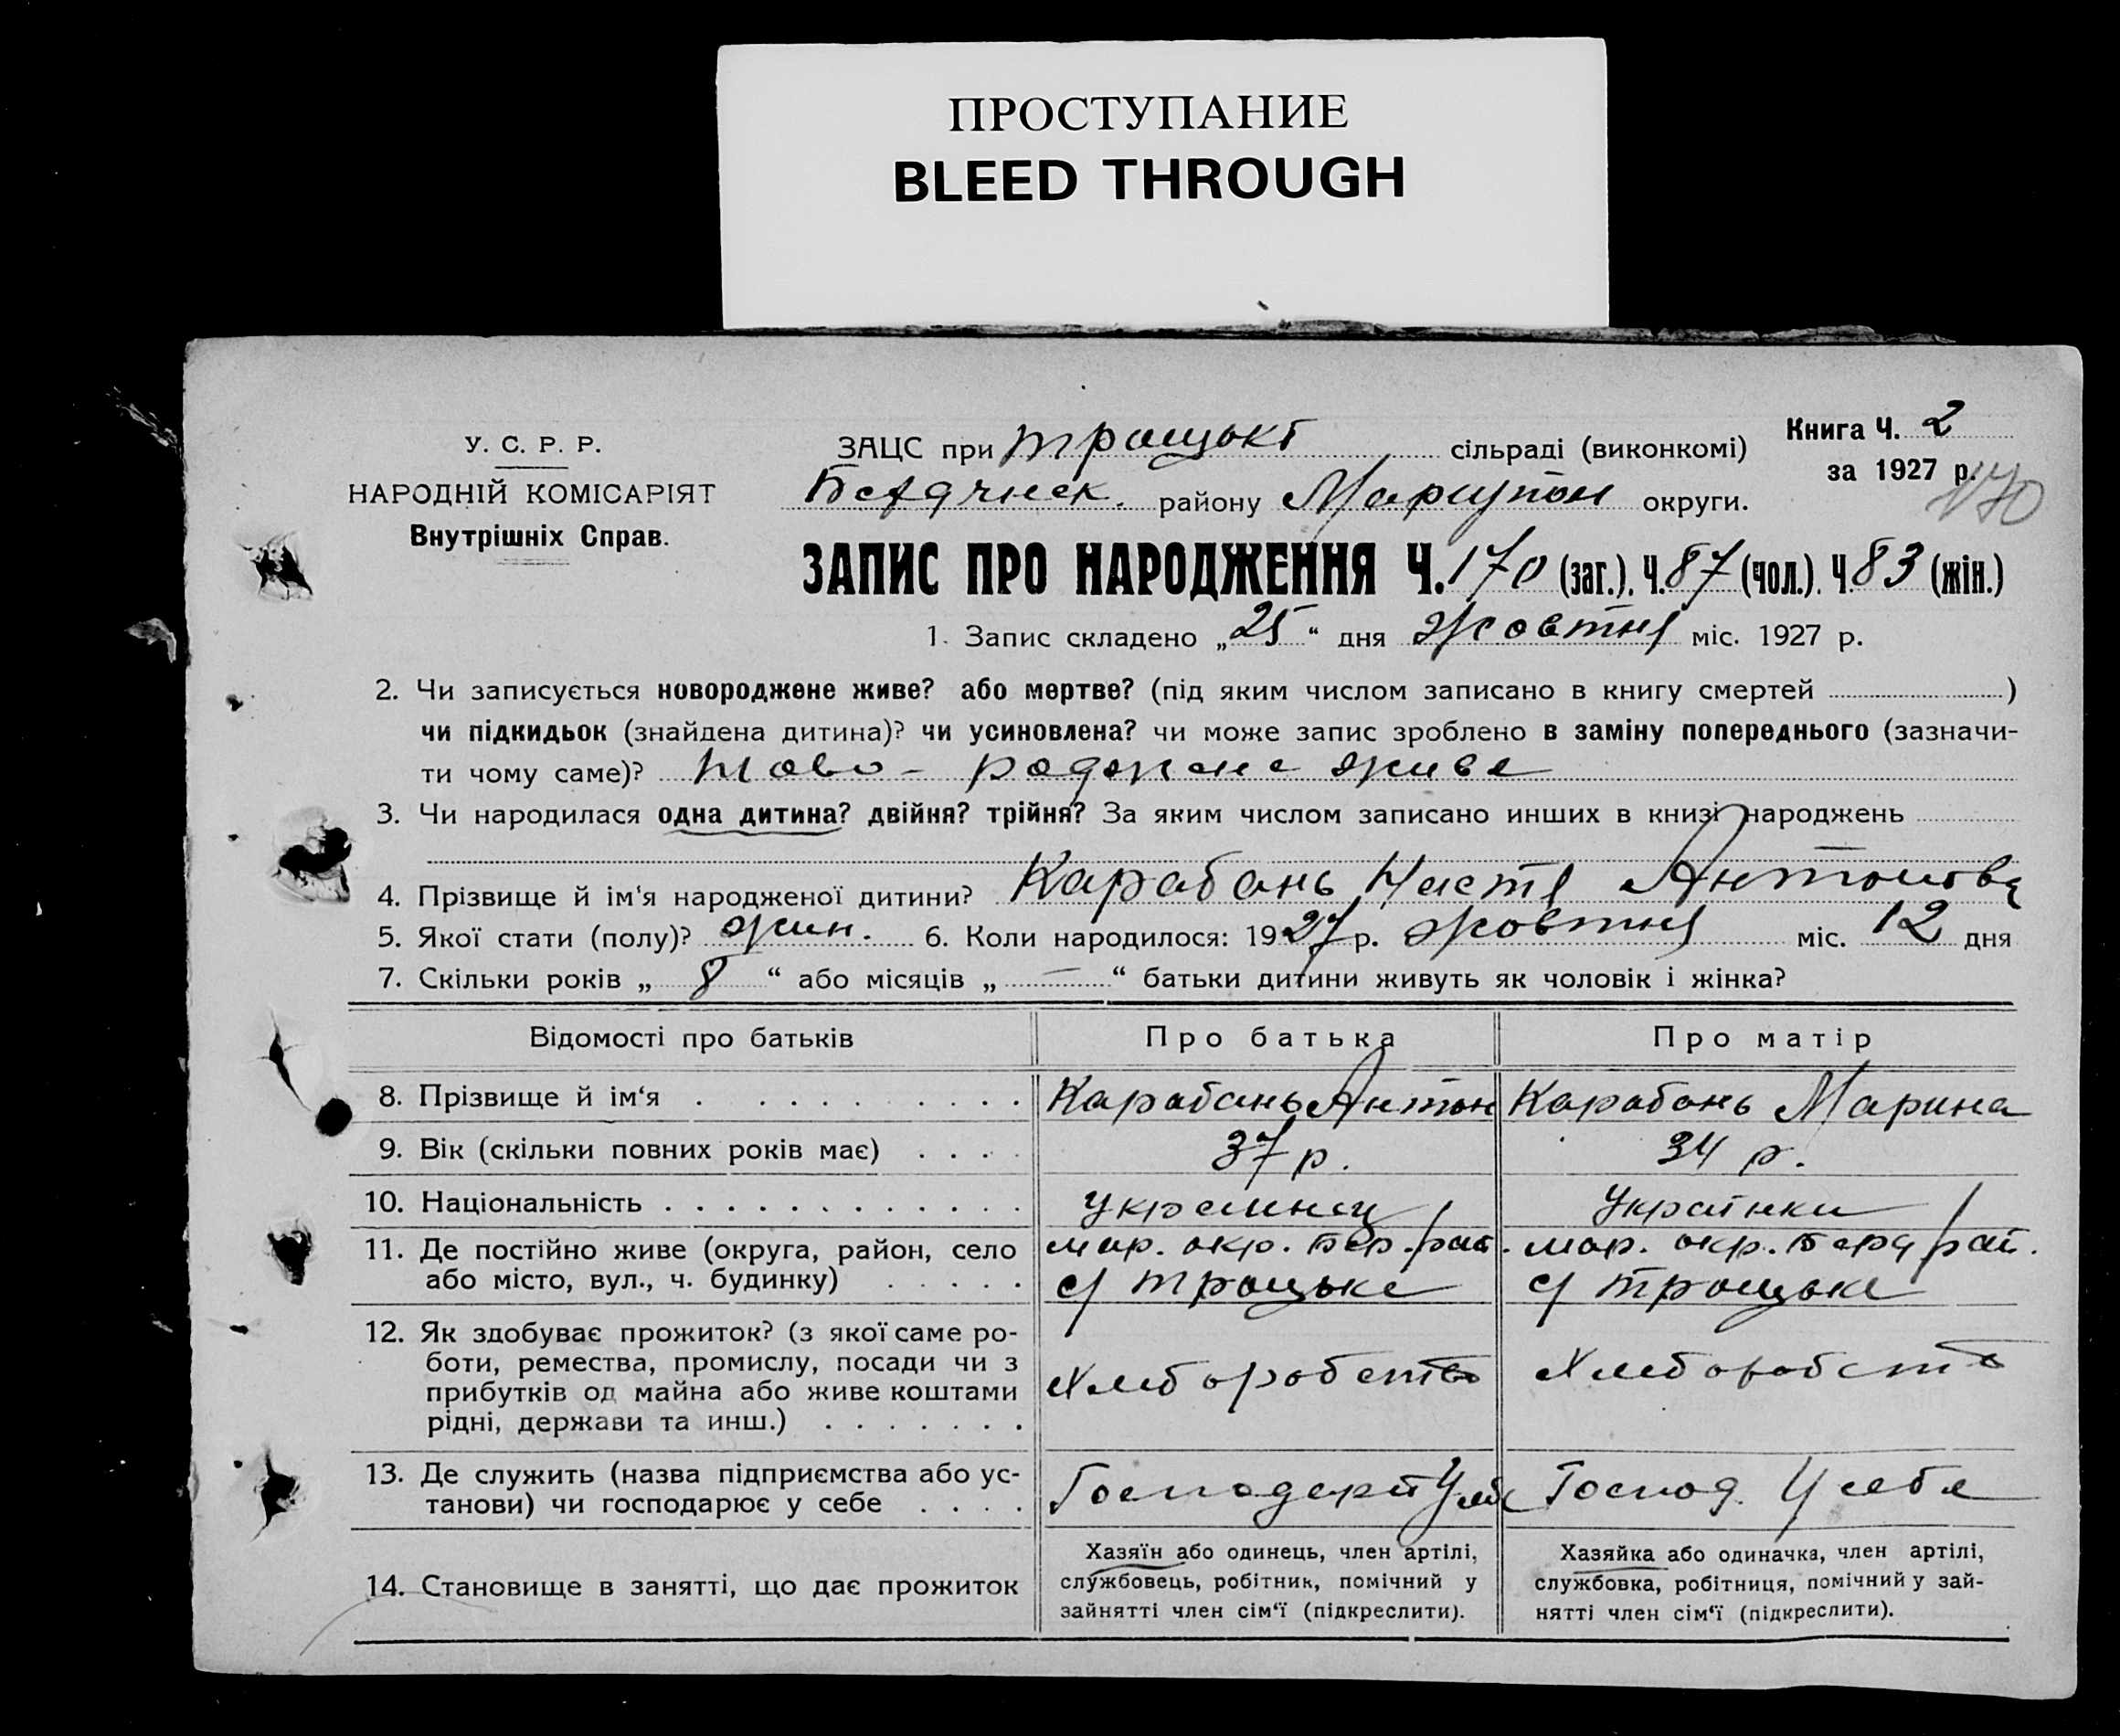 ПРОСТУПАНИЕ
BLEED THROUGH
У. С. Р. Р.
НАРОДНІЙ КОМІСАРІЯТ
Внутрішніх Справ.
ЗАЦС при Троцькі сільраді (виконкомі)
Бердянск. району Маріупол округи.
Книга Ч. 2
за 1927 р.
170
ЗАПИС ПРО НАРОДЖЕННЯ Ч. 170 (заг.). Ч. 87 (чол.). Ч. 83 (жін.)
1. Запис складено „ 25 “ дня Жовтня міс. 1927 р.
2. Чи записується новороджене живе? або мертве? (під яким числом записано в книгу смертей )
чи підкидьок (знайдена дитина)? чи усиновлена? чи може запис зроблено в заміну попереднього (зазначи-
ти чому саме)? Ново - роджене живе
3. Чи народилася одна дитина? двійня? трійня? За яким числом записано инших в книзі народжень
4. Прізвище й ім‘я народженої дитини? Карабань Настя Антонова
5. Якої стати (полу)? жин. 6. Коли народилося: 1927 р. жовтня міс. 12 дня
7. Скільки років „ 8 “ або місяців „ — “ батьки дитини живуть як чоловік і жінка?
Відомості про батьків Про батька Про матір
8. Прізвище й ім‘я Карабань Антон Карабань Марина
9. Вік (скільки повних років має) 37 р. 34 р.
10. Національність українец Українка
11. Де постійно живе (округа, район, село мар. окр. Бер. рай. мар. окр. Берд рай.
або місто, вул., ч. будинку) с/ Троцьке с/ Троцьке
12. Як здобуває прожиток? (з якої саме ро-
боти, ремества, промислу, посади чи з
прибутків од майна або живе коштами
рідні, держави та инш.)
Хліборобство Хліборобство
13. Де служить (назва підприємства або ус-
танови) чи господарює у себе
Господарює У себе Господ. У себе
14. Становище в занятті, що дає прожиток
Хазяїн або одинець, член артілі,
службовець, робітник, помічний у
зайнятті член сім‘ї (підкреслити).
Хазяйка або одиначка, член артілі,
службовка, робітниця, помічний у зай-
нятті член сім‘ї (підкреслити).